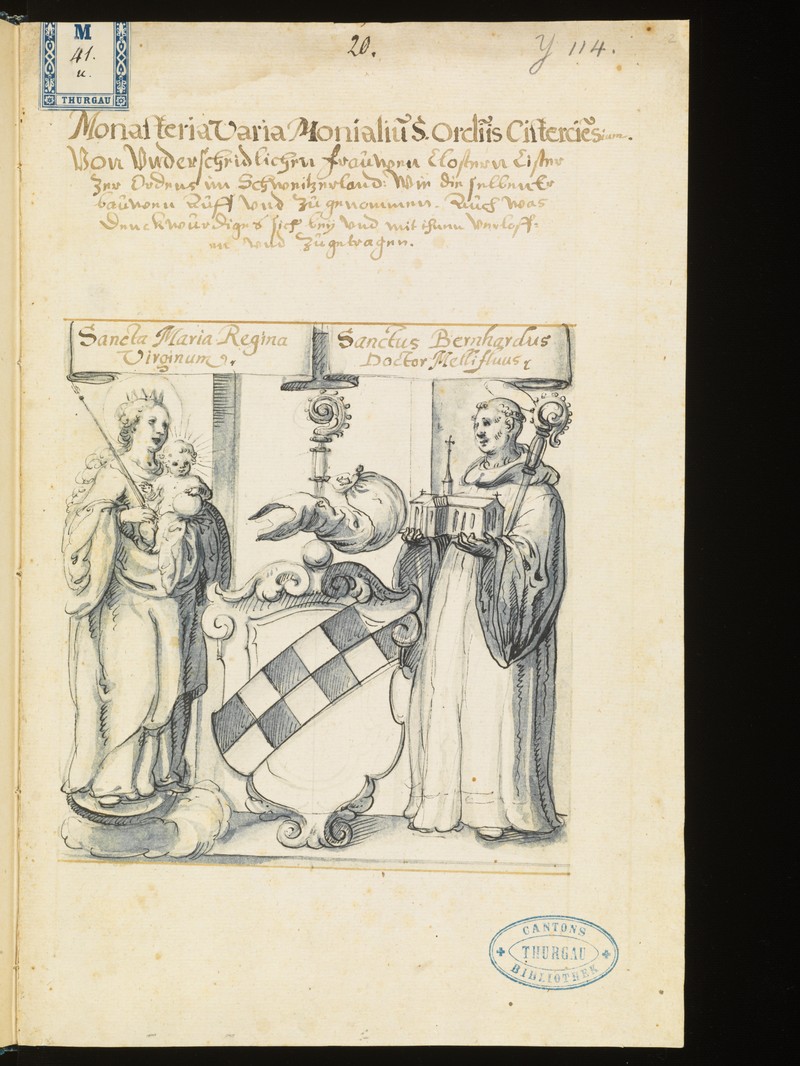 M
41.
u.
THURGAU
20.
Y 114.
Monasteria Varia Monialiũ S. Ordiis Cisterciẽsium.
Von Vnderscheidlichen frauwen Clostern Cister
Zer Ordens im Schweitzerland: Wie die selben er
bauwen Auff vnd Zugenommen. Auch was
denckwürdiges sich bey vnd mit ihnen verloff-
en vnd Zugetragen.
Sancta Maria Regina
Virginum
Sanctus Bernhardus
Doctor Mellifluus
CANTONS
THURGAU
BIBLIOTHEK